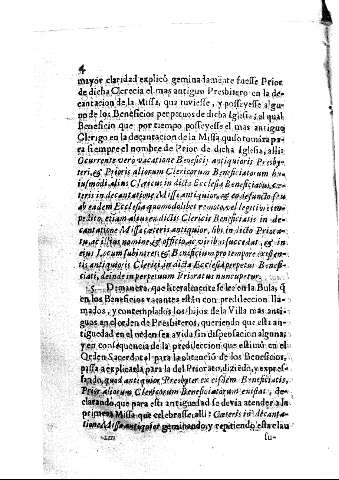 4
mayor claridad explicò geminadamente fuesse Prior
de dicha Clerecia el mas antiguo Presbitero en la de-
cantacion de la Missa, que tuviesse, y posseyesse algu-
no de los Beneficios perpetuos de dicha Iglesia; al qual
Beneficio que por tiempo posseyesse el mas antiguo
Clerigo en la decantacion de la Missa quiso tomàra pa-
ra siempre el nombre de Prior de dicha Iglesia, alli:
Ocurrente verò vacatione Beneficij antiquioris Presby-
teri, & Prioris aliorum Clericorum Beneficiatorum hu-
iusmodi, alius Clericus in dicta Ecclesia Beneficiatus, cæ-
teris in decantatione Missæ antiquior, & eo defuncto seu
ab eadem Ecclesia quomodolibet remoto, vel legitime im-
pedito, etiam alius ex dictis Clericis Beneficiatis in de-
cantatione Missæ cæteris antiquior, sibi in dicto Priora-
tu, ac illius nomine, & officio, ac viribus succedat, & in
eius Locum subintret, & Beneficium pro tempore existen-
tis antiquioris Clerici in dicta Ecclesia perpetuò Benefi-
ciati, deinde in perpetuum Prioratus nuncupetur.
5. De manera, que literalmente se lee en la Bula, q̃
en los Beneficios vacantes estàn con predileccion lla-
mados, y contemplados los hijos de la Villa mas anti-
guos en el orden de Presbiteros, queriendo que esta an-
tiguedad en el orden sea avida sin dispensacion alguna;
y en consequencia de la predileccion que estimò en el
Orden Sacerdotal para la obtenciò de los Beneficios,
passa à explicarla para la del Priorato, diziẽdo, y expres-
sando, quod antiquior Presbyter ex eisdem Beneficiatis,
Prior aliorum Clericorum Beneficiatorum existat, de-
clarando, que para esta antiguedad se devia atender à la
primera Missa que celebrasse, alli: Cæteris in decanta-
tione Missæ antiquior geminando, y repitiendo esta clau
su-